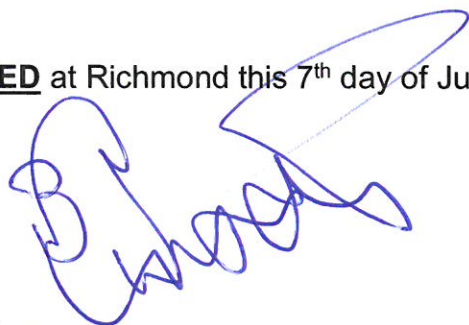 ED at Richmond this 7th day of Ju